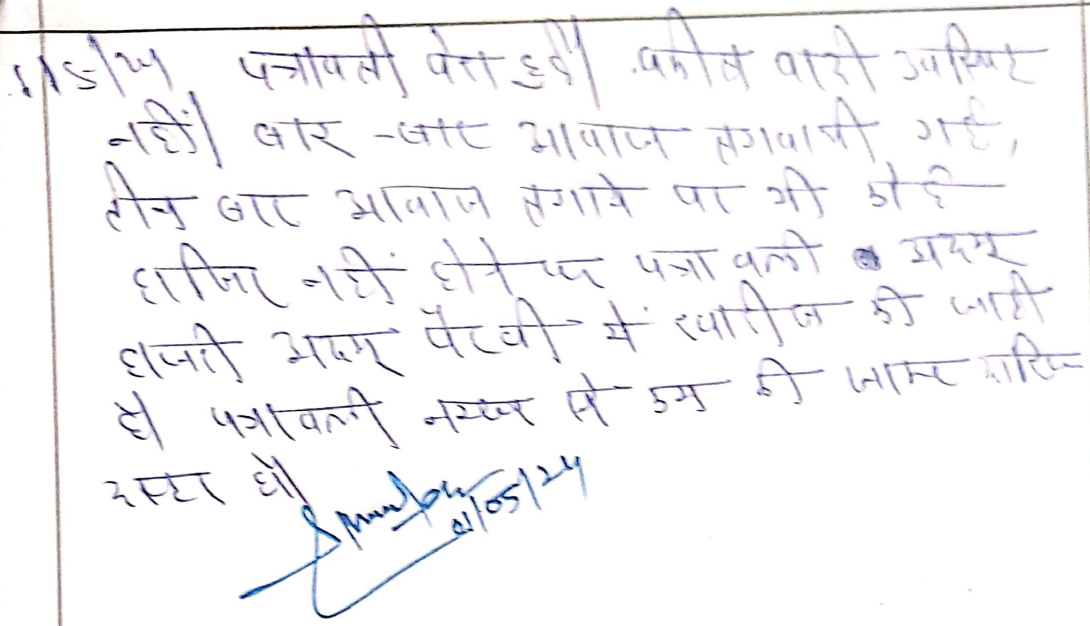 1/5/24 पत्रावली पेश हुई। वकील वादी उपस्थित
नहीं। बार-बार आवाज लगवायी गई,
तीन बार आवाज लगाने पर भी कोई
हाजिर नहीं होने पर पत्रावली अदम
हाजरी अदम पैरवी में खारीज की जाती
है। पत्रावली नम्बर से कम की जाकर दाखिल
दफ्तर हो।
01/05/24